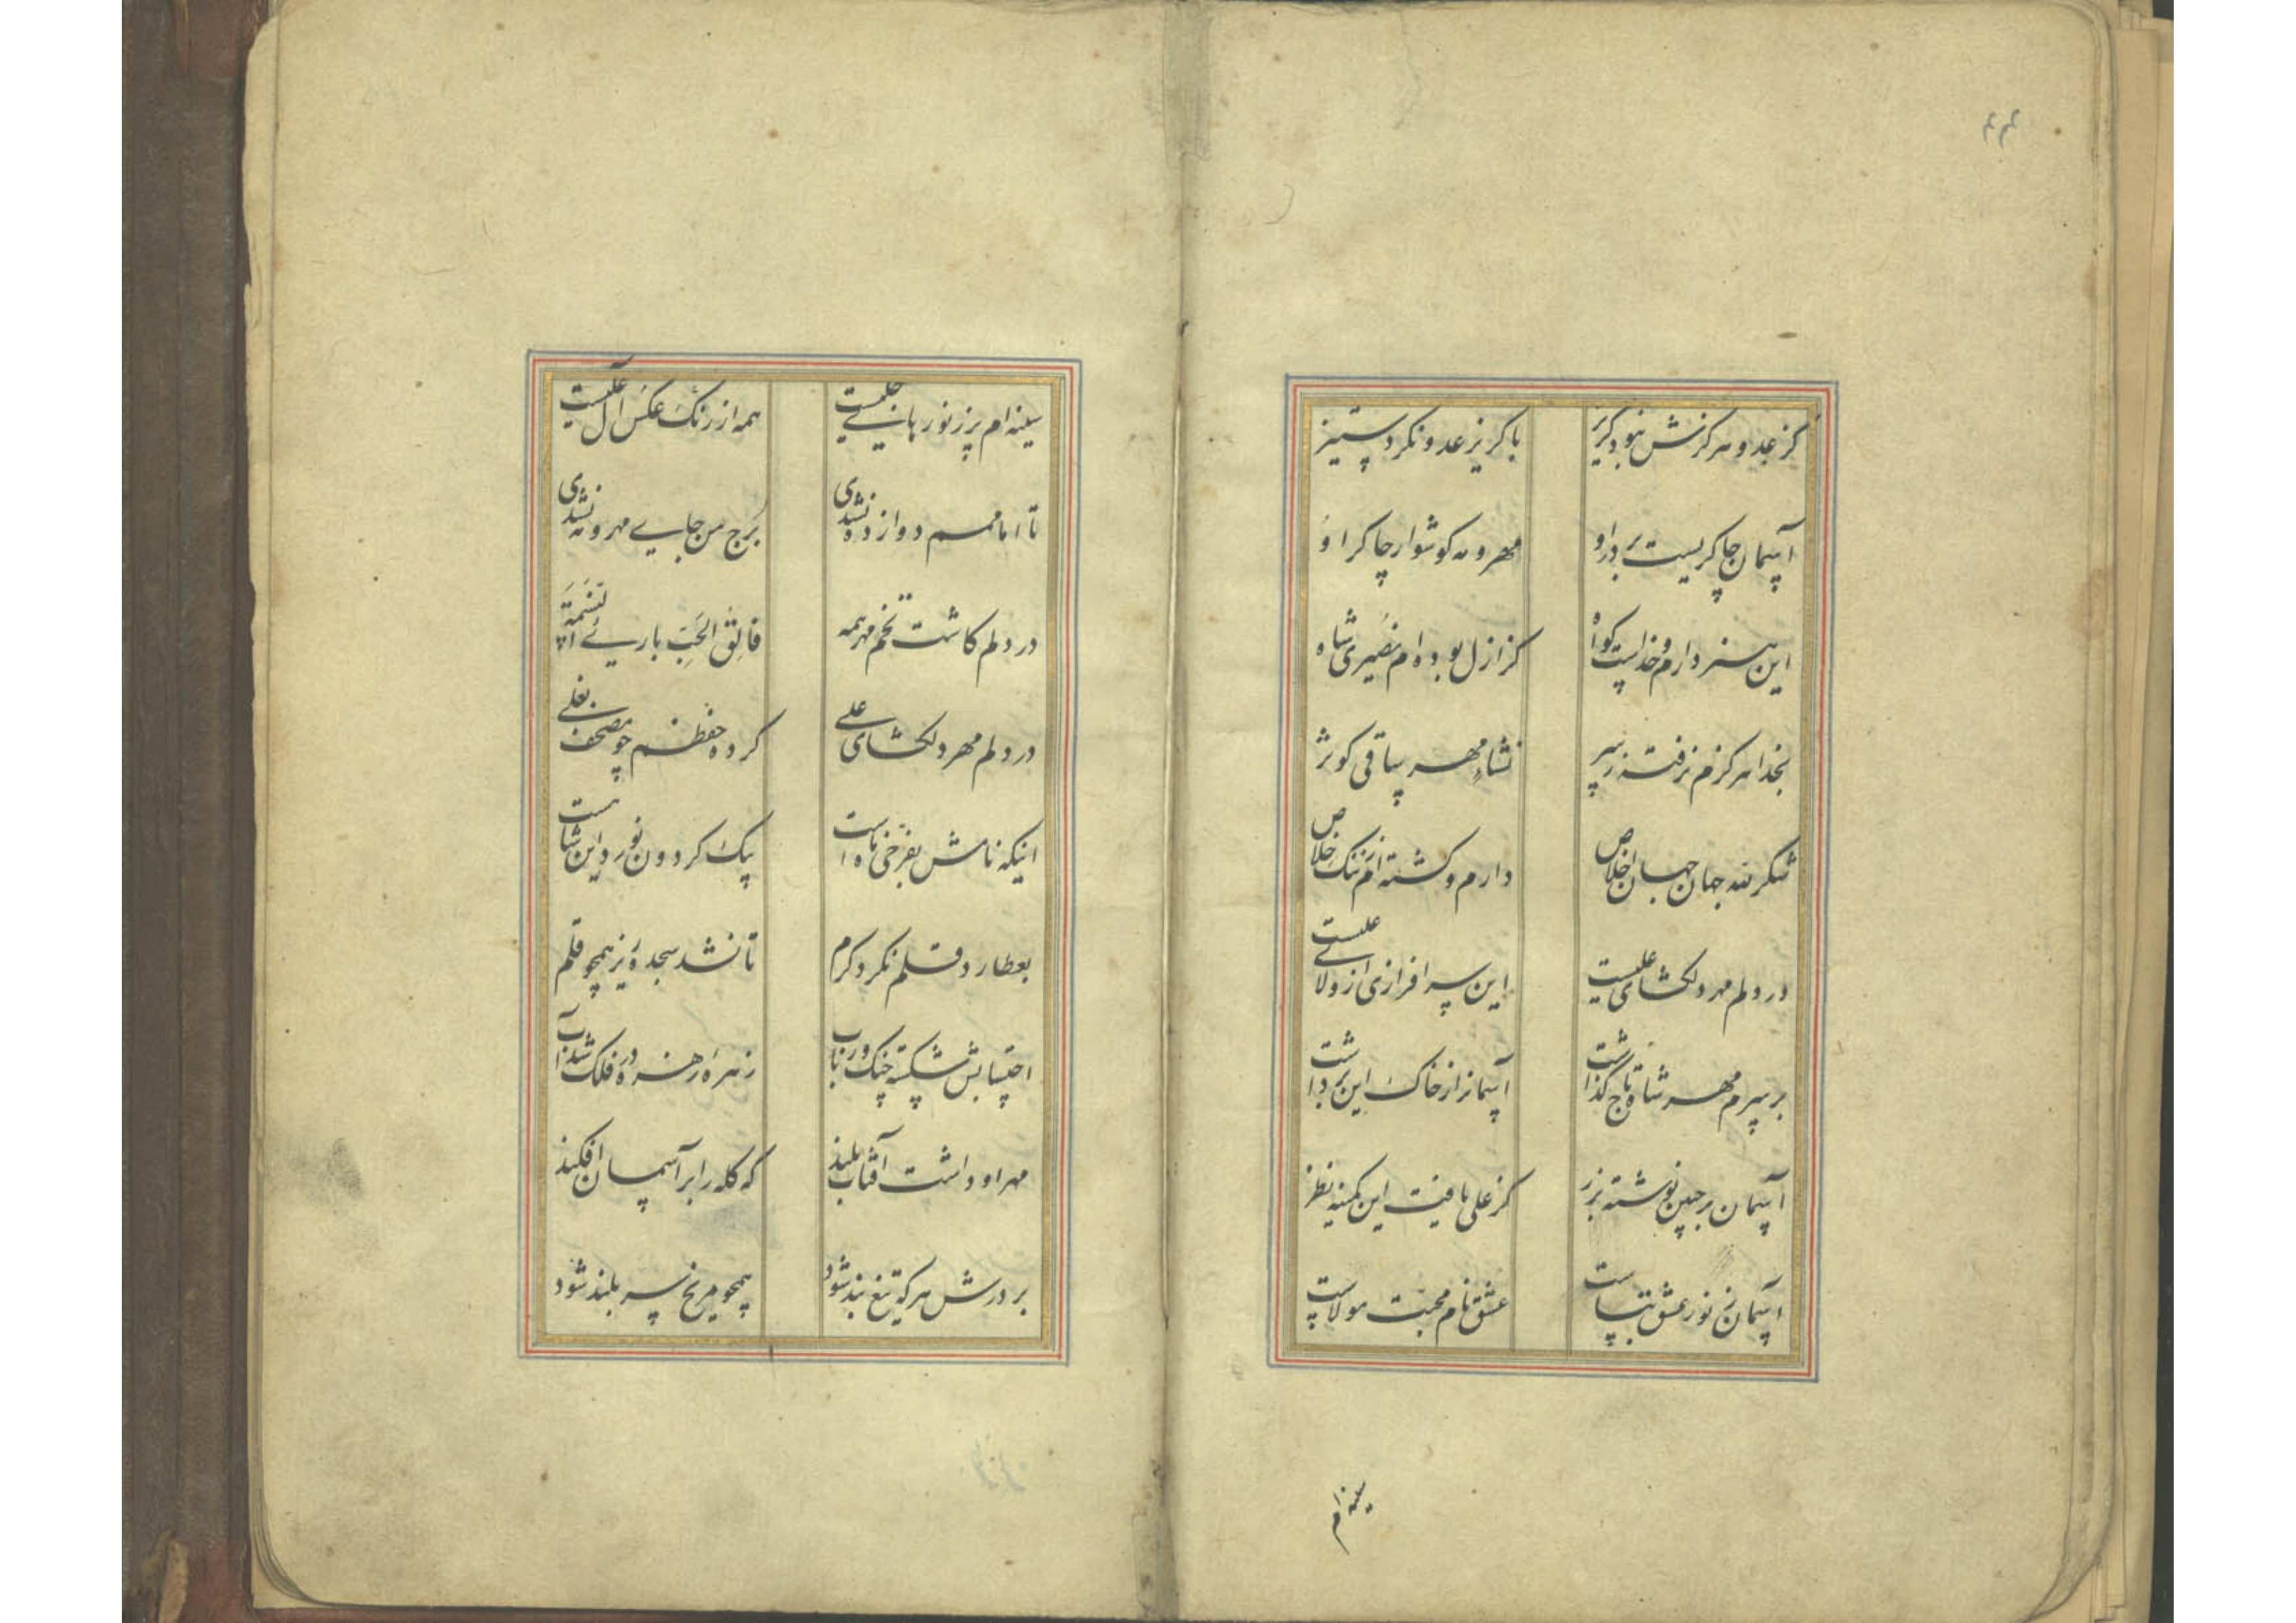 ۴۴
کز عدو هرگزش نبود گریز با گریز عدو نکرد ستیز
آسمان چاکریست بر در او مهر و مه گوشوار چاکر او
این هنر دارم و خداست گواه کز ازل بوده‌ام نصیری شاه
بخدا هرگزم نرفت ز سر نشاهٔ مهر ساقی کوثر
شکر لله جهان جهان اخلاص دارم و گشته‌ام ز ننگ خلاص
در دلم مهر دلگشای علیست این سرافرازی از ولای علیست
بر سرم مهر شاه تاج گذاشت آسمانم از خاک این برداشت
آسمان بر جبین نوشته بزر کز علی یافت این کمینه نظر
آسمانم ز نور عشق بپاست عشق نام محبت مولاست
سینه‌ام
سینه‌ام پر ز نورهای جلیست همه از رنگ عکس آل علیست
تا امامم دوازده نشدی برج من جای مهر و مه نشدی
در دلم کاشت تخم مهر همه فالق الحب باریء النسمة
در دلم مهر دلگشای علی کرده حفظم چو مصحف بغلی
اینکه نامش بفرخی ماه است پیک گردون نورد این شاه است
بعطارد قلم نکرد کرم تا نشد سجده‌ریز همچو قلم
احتسابش شکسته چنگ و رباب زهره را زهره در فلک شد آب
مهر او داشت آفتاب بلند که کله را بر آسمان افکند
بر درش هر که تیغ بند شود همچو مریخ سر بلند شود